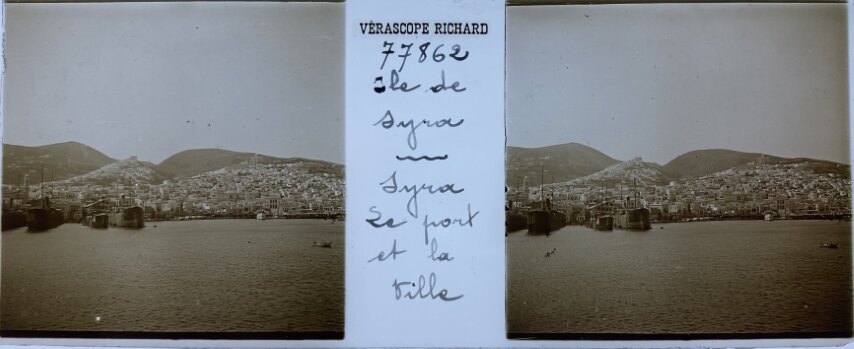 VÉRASCOPE RICHARD
77862
Ile de
Syra
Syra
Le port
et la
Ville